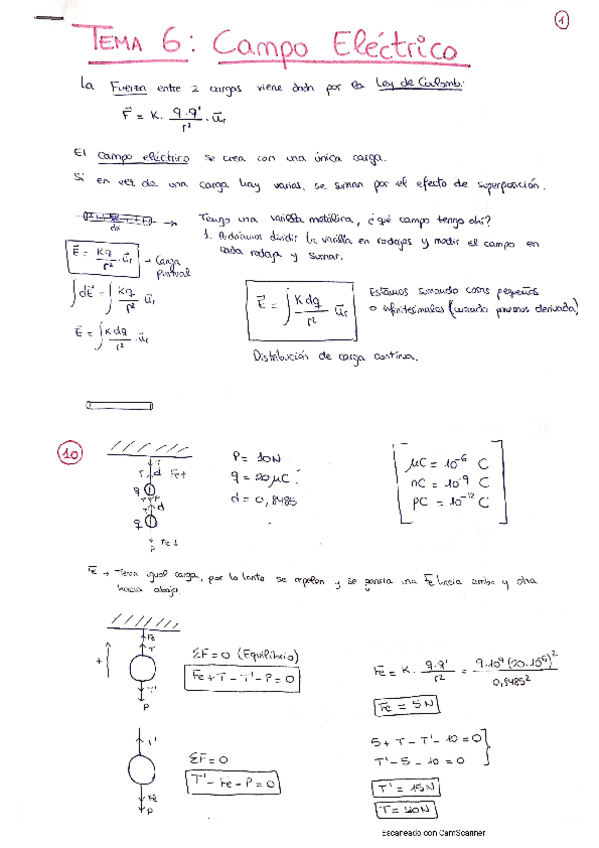 1
TEMA 6: Campo Eléctrico
La Fuerza entre 2 cargas viene dada por la Ley de Coulomb:
F⃗ = K · q·q' / r² · u⃗r
El campo eléctrico se crea con una única carga.
Si en vez de una carga hay varias, se suman por el efecto de superposición.
dx
Tengo una varilla metálica, ¿qué campo tengo ahí?
1. Podríamos dividir la varilla en rodajas y medir el campo en
cada rodaja y sumar.
E⃗ = Kq / r² · u⃗r → Carga
puntual
∫dE⃗ = ∫ Kq / r² u⃗r
E⃗ = ∫ K dq / r² · u⃗r
E⃗ = ∫ K dq / r² u⃗r
Estamos sumando cosas pequeñas
o infinitesimales (cuando ponemos derivada)
Distribución de carga continua.
10
T d Fe↑
q
T' P
T' d
q
Fe↓
P
P = 10N
q = 20μC
d = 0,8485
μC = 10⁻⁶ C
nC = 10⁻⁹ C
pC = 10⁻¹² C
Fe → Tienen igual carga, por lo tanto se repelen y se genera una Fe hacia arriba y otra
hacia abajo
Fe
T
+
T'
P
ΣF = 0 (Equilibrio)
Fe + T - T' - P = 0
Fe = K · q·q' / r² = 9·10⁹ (20·10⁻⁶)² / 0,8485²
Fe = 5N
T'
Fe
P
ΣF = 0
T' - Fe - P = 0
5 + T - T' - 10 = 0
T' - 5 - 10 = 0
T' = 15N
T = 20N
Escaneado con CamScanner